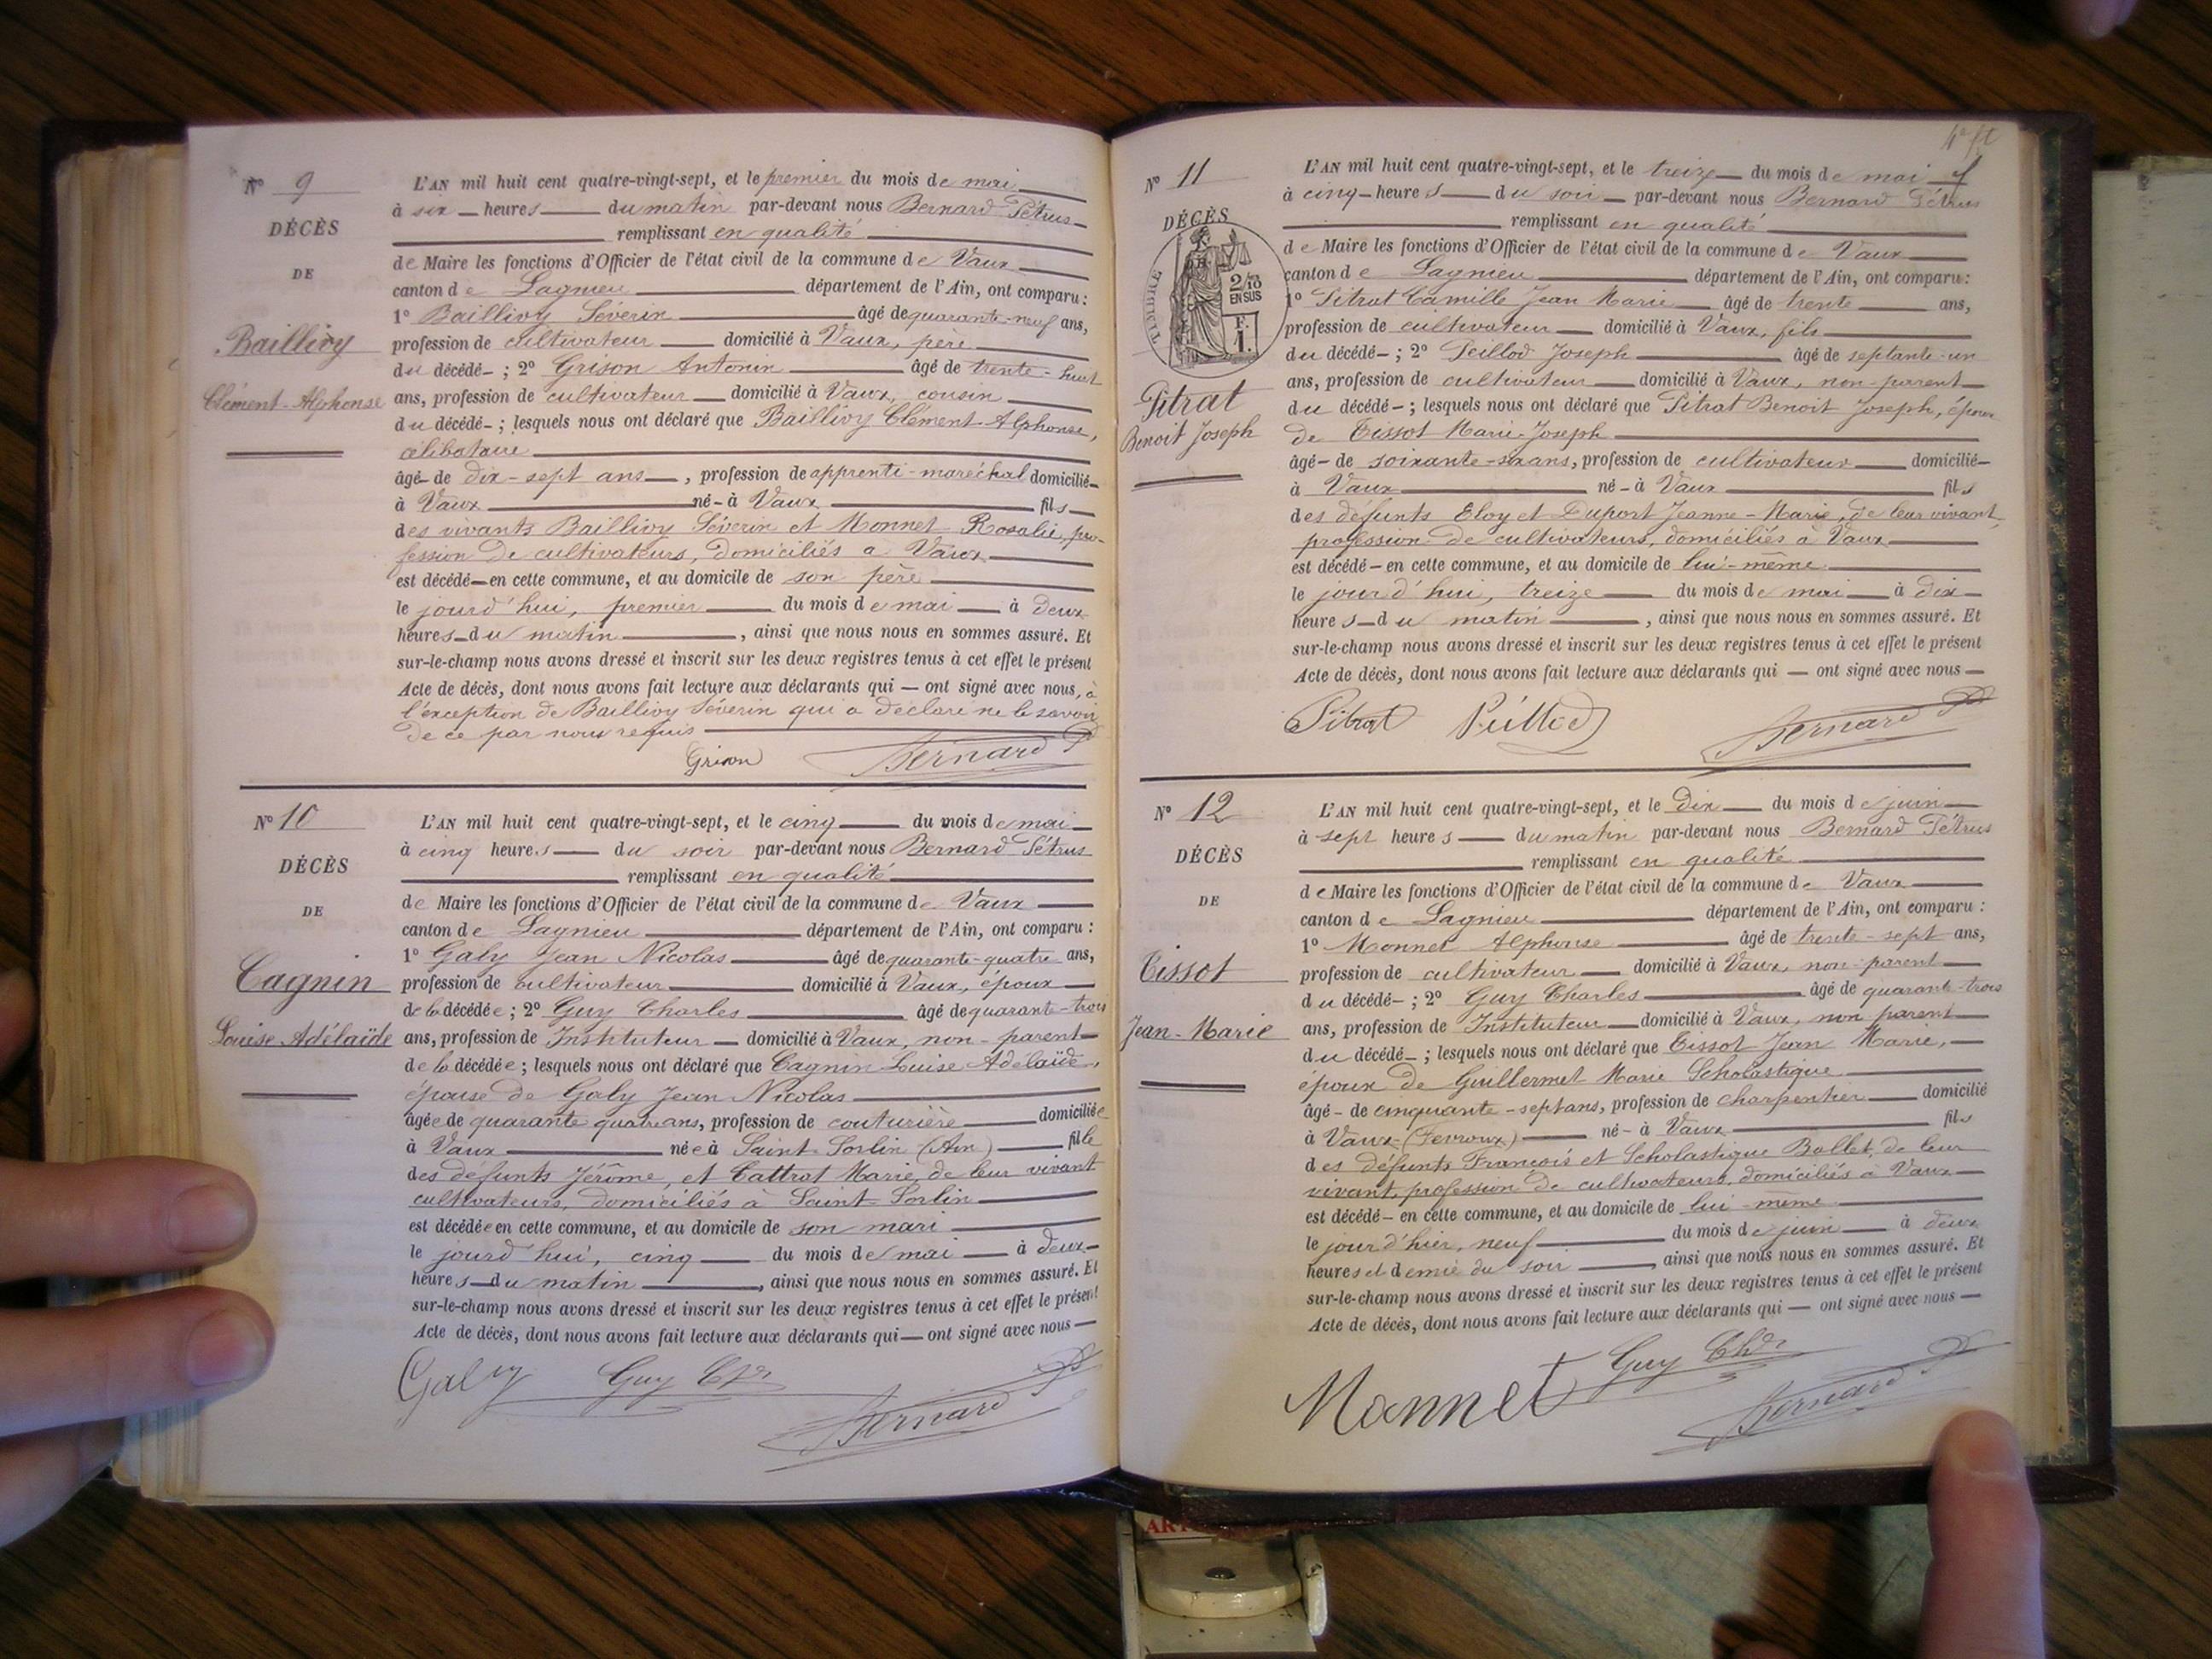 N° 9
DÉCÈS
DE
Baillivy
Clément-Alphonse
L'AN mil huit cent quatre-vingt-sept, et le premier du mois de mai
à six heures du matin par-devant nous Bernard Pétrus
remplissant en qualité
de Maire les fonctions d'Officier de l'état civil de la commune de Vaux
canton de Lagnieu département de l'Ain, ont comparu :
1° Baillivy Séverin âgé de quarante-neuf ans,
profession de cultivateur domicilié à Vaux, père
du décédé ; 2° Grison Antonin âgé de trente-huit
ans, profession de cultivateur domicilié à Vaux, cousin
du décédé ; lesquels nous ont déclaré que Baillivy Clément-Alphonse,
célibataire
âgé de dix-sept ans, profession de apprenti-maréchal domicilié
à Vaux né à Vaux fils
des vivants Baillivy Séverin et Monnet Rosalie, pro-
fession de cultivateurs, domiciliés à Vaux
est décédé en cette commune, et au domicile de son père
le jourd'hui, premier du mois de mai à deux
heures du matin, ainsi que nous nous en sommes assuré. Et
sur-le-champ nous avons dressé et inscrit sur les deux registres tenus à cet effet le présent
Acte de décès, dont nous avons fait lecture aux déclarants qui ont signé avec nous, à
l'exception de Baillivy Séverin qui a déclaré ne le savoir
de ce par nous requis
Grison Bernard P
N° 10
DÉCÈS
DE
Cagnin
Louise Adélaïde
L'AN mil huit cent quatre-vingt-sept, et le cinq du mois de mai
à cinq heures du soir par-devant nous Bernard Pétrus
remplissant en qualité
de Maire les fonctions d'Officier de l'état civil de la commune de Vaux
canton de Lagnieu département de l'Ain, ont comparu :
1° Galy Jean Nicolas âgé de quarante-quatre ans,
profession de cultivateur domicilié à Vaux, époux
de la décédée ; 2° Guy Charles âgé de quarante-trois
ans, profession de Instituteur domicilié à Vaux, non-parent
de la décédée ; lesquels nous ont déclaré que Cagnin Louise Adélaïde,
épouse de Galy Jean Nicolas
âgée de quarante quatre ans, profession de couturière domiciliée
à Vaux née à Saint-Sorlin (Ain) fille
des défunts Jérôme, et Cattrat Marie, de leur vivant
cultivateurs, domiciliés à Saint-Sorlin
est décédée en cette commune, et au domicile de son mari
le jourd'hui, cinq du mois de mai à deux
heures du matin, ainsi que nous nous en sommes assuré. Et
sur-le-champ nous avons dressé et inscrit sur les deux registres tenus à cet effet le présent
Acte de décès, dont nous avons fait lecture aux déclarants qui ont signé avec nous
Galy Guy Chs Bernard P
N° 11
DÉCÈS
TIMBRE
2/10
EN SUS
F.
1.
Pitrat
Benoit Joseph
L'AN mil huit cent quatre-vingt-sept, et le treize du mois de mai
à cinq heures du soir par-devant nous Bernard Pétrus
remplissant en qualité
de Maire les fonctions d'Officier de l'état civil de la commune de Vaux
canton de Lagnieu département de l'Ain, ont comparu :
1° Pitrat Camille Jean Marie âgé de trente ans,
profession de cultivateur domicilié à Vaux, fils
du décédé ; 2° Peillod Joseph âgé de septante-un
ans, profession de cultivateur domicilié à Vaux, non-parent
du décédé ; lesquels nous ont déclaré que Pitrat Benoit Joseph, époux
de Tissot Marie-Joseph
âgé de soixante-six ans, profession de cultivateur domicilié
à Vaux né à Vaux fils
des défunts Eloy et Duport Jeanne-Marie, de leur vivant
profession de cultivateurs, domiciliés à Vaux
est décédé en cette commune, et au domicile de lui-même
le jourd'hui, treize du mois de mai à dix
heures du matin, ainsi que nous nous en sommes assuré. Et
sur-le-champ nous avons dressé et inscrit sur les deux registres tenus à cet effet le présent
Acte de décès, dont nous avons fait lecture aux déclarants qui ont signé avec nous
Pitrat Peillod Bernard P
N° 12
DÉCÈS
DE
Tissot
Jean-Marie
L'AN mil huit cent quatre-vingt-sept, et le dix du mois de juin
à sept heures du matin par-devant nous Bernard Pétrus
remplissant en qualité
de Maire les fonctions d'Officier de l'état civil de la commune de Vaux
canton de Lagnieu département de l'Ain, ont comparu :
1° Monnet Alphonse âgé de trente-sept ans,
profession de cultivateur domicilié à Vaux, non-parent
du décédé ; 2° Guy Charles âgé de quarante-trois
ans, profession de Instituteur domicilié à Vaux, non parent
du décédé ; lesquels nous ont déclaré que Tissot Jean Marie,
époux de Guillermet Marie Scholastique
âgé de cinquante-sept ans, profession de charpentier domicilié
à Vaux (Fevroux) né à Vaux fils
des défunts François et Scholastique Ballet, de leur
vivant, profession de cultivateurs, domiciliés à Vaux
est décédé en cette commune, et au domicile de lui-même
le jour d'hier, neuf du mois de juin à deux
heures et demie du soir, ainsi que nous nous en sommes assuré. Et
sur-le-champ nous avons dressé et inscrit sur les deux registres tenus à cet effet le présent
Acte de décès, dont nous avons fait lecture aux déclarants qui ont signé avec nous
Monnet Guy Chs Bernard P